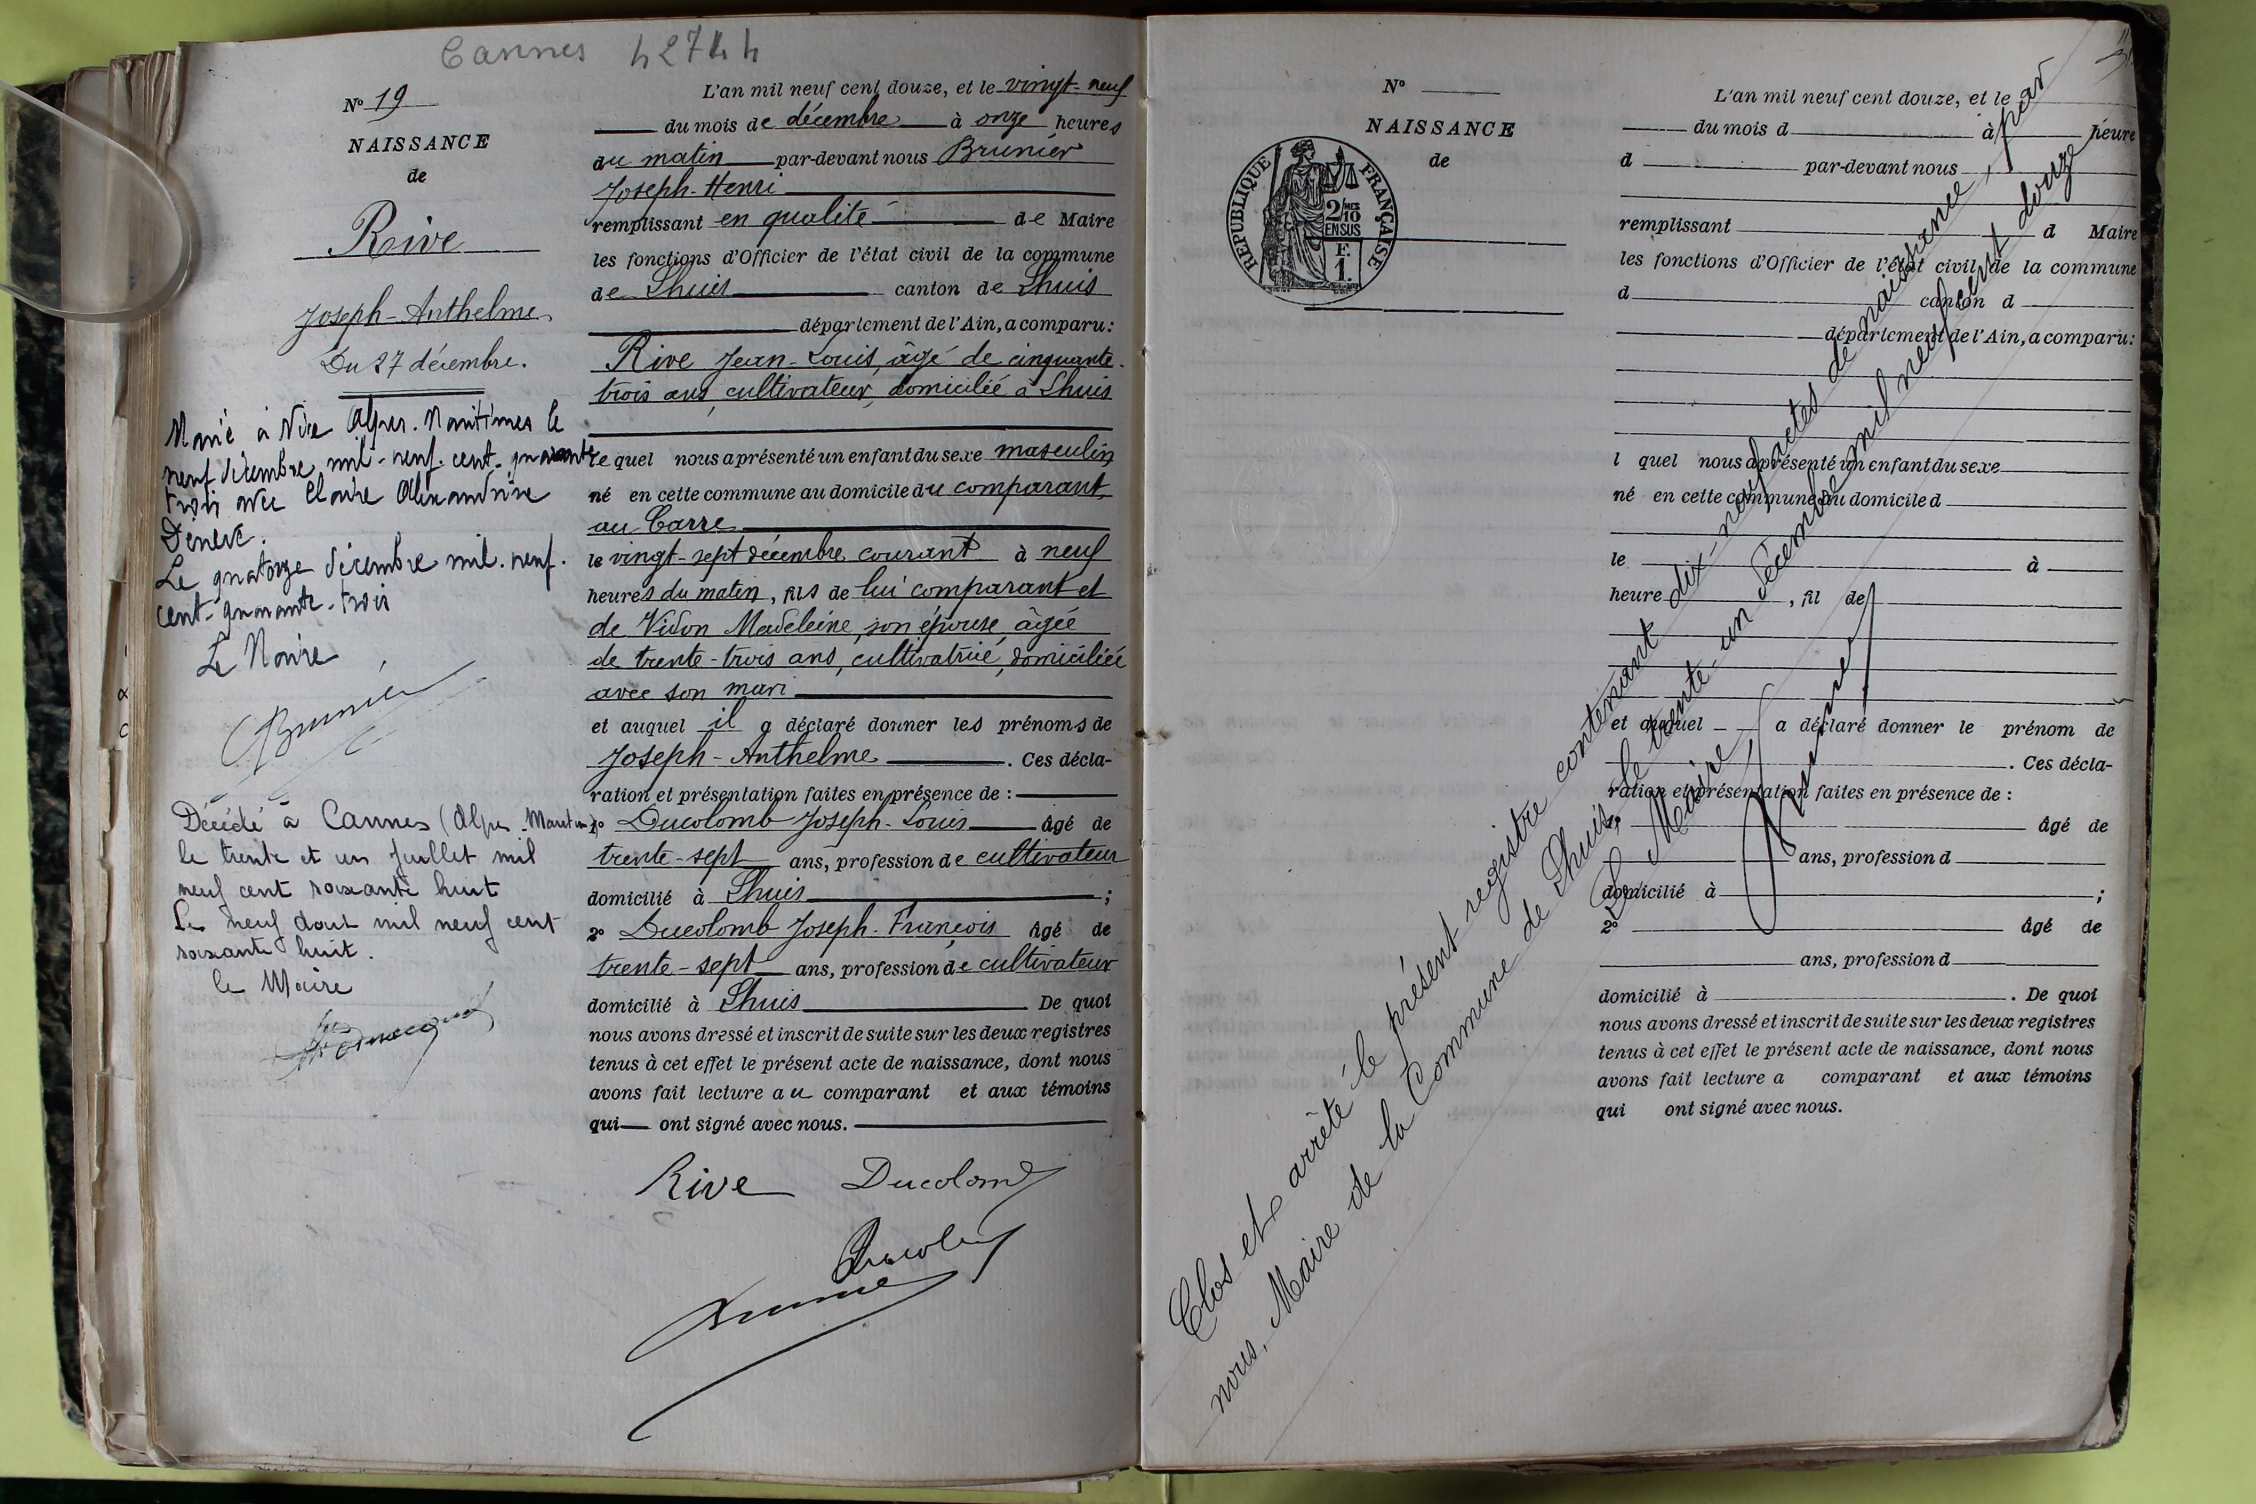 Cannes 42744
N° 19
NAISSANCE
de
Rive
Joseph-Anthelme
Du 27 décembre.
Marié à Nice Alpes-Maritimes le
neuf décembre mil-neuf-cent-quarante
trois avec Claire Alexandrine
Le quatorze décembre mil-neuf-
cent-quarante-trois
Le Maire
Brunier
Décédé à Cannes (Alpes-Maritimes)
le trente et un Juillet mil
neuf cent soixante huit
Le neuf Aout mil neuf cent
soixante huit.
le Maire
L'an mil neuf cent douze, et le vingt-neuf
du mois de décembre à onze heures
du matin par-devant nous Brunier
Joseph-Henri
remplissant en qualité de Maire
les fonctions d'Officier de l'état civil de la commune
de Lhuis canton de Lhuis
département de l'Ain, a comparu:
Rive Jean-Louis, âgé de cinquante-
trois ans, cultivateur, domicilié à Lhuis
lequel nous a présenté un enfant du sexe masculin
né en cette commune au domicile du comparant,
au Carre
le vingt-sept décembre courant à neuf
heures du matin, fils de lui comparant et
de Vidon Madeleine, son épouse, âgée
de trente-trois ans, cultivatrice, domiciliée
avec son mari
et auquel il a déclaré donner les prénoms de
Joseph-Anthelme. Ces décla-
ration et présentation faites en présence de :
1° Ducolomb Joseph-Louis âgé de
trente-sept ans, profession de cultivateur
domicilié à Lhuis ;
2° Ducolomb Joseph-François âgé de
trente-sept ans, profession de cultivateur
domicilié à Lhuis De quoi
nous avons dressé et inscrit de suite sur les deux registres
tenus à cet effet le présent acte de naissance, dont nous
avons fait lecture au comparant et aux témoins
qui ont signé avec nous.
Rive Ducolomb
Ducolomb
Brunier
N°
NAISSANCE
de
REPUBLIQUE FRANÇAISE
2/10 MES
EN SUS
F.
1.
L'an mil neuf cent douze, et le
du mois d à heure
d par-devant nous
remplissant d Maire
les fonctions d'Officier de l'état civil de la commune
d canton d
département de l'Ain, a comparu:
l quel nous a présenté un enfant du sexe
né en cette commune au domicile d
le à
heure , fil de
et auquel a déclaré donner le prénom de
. Ces décla-
ration et présentation faites en présence de :
1° âgé de
ans, profession d
domicilié à ;
2° âgé de
ans, profession d
domicilié à . De quoi
nous avons dressé et inscrit de suite sur les deux registres
tenus à cet effet le présent acte de naissance, dont nous
avons fait lecture a comparant et aux témoins
qui ont signé avec nous.
Clos et arrêté le présent registre contenant dix-neuf actes de naissance, par
nous, Maire de la Commune de Lhuis, le trente-un décembre mil neuf cent douze
Le Maire,
Brunier